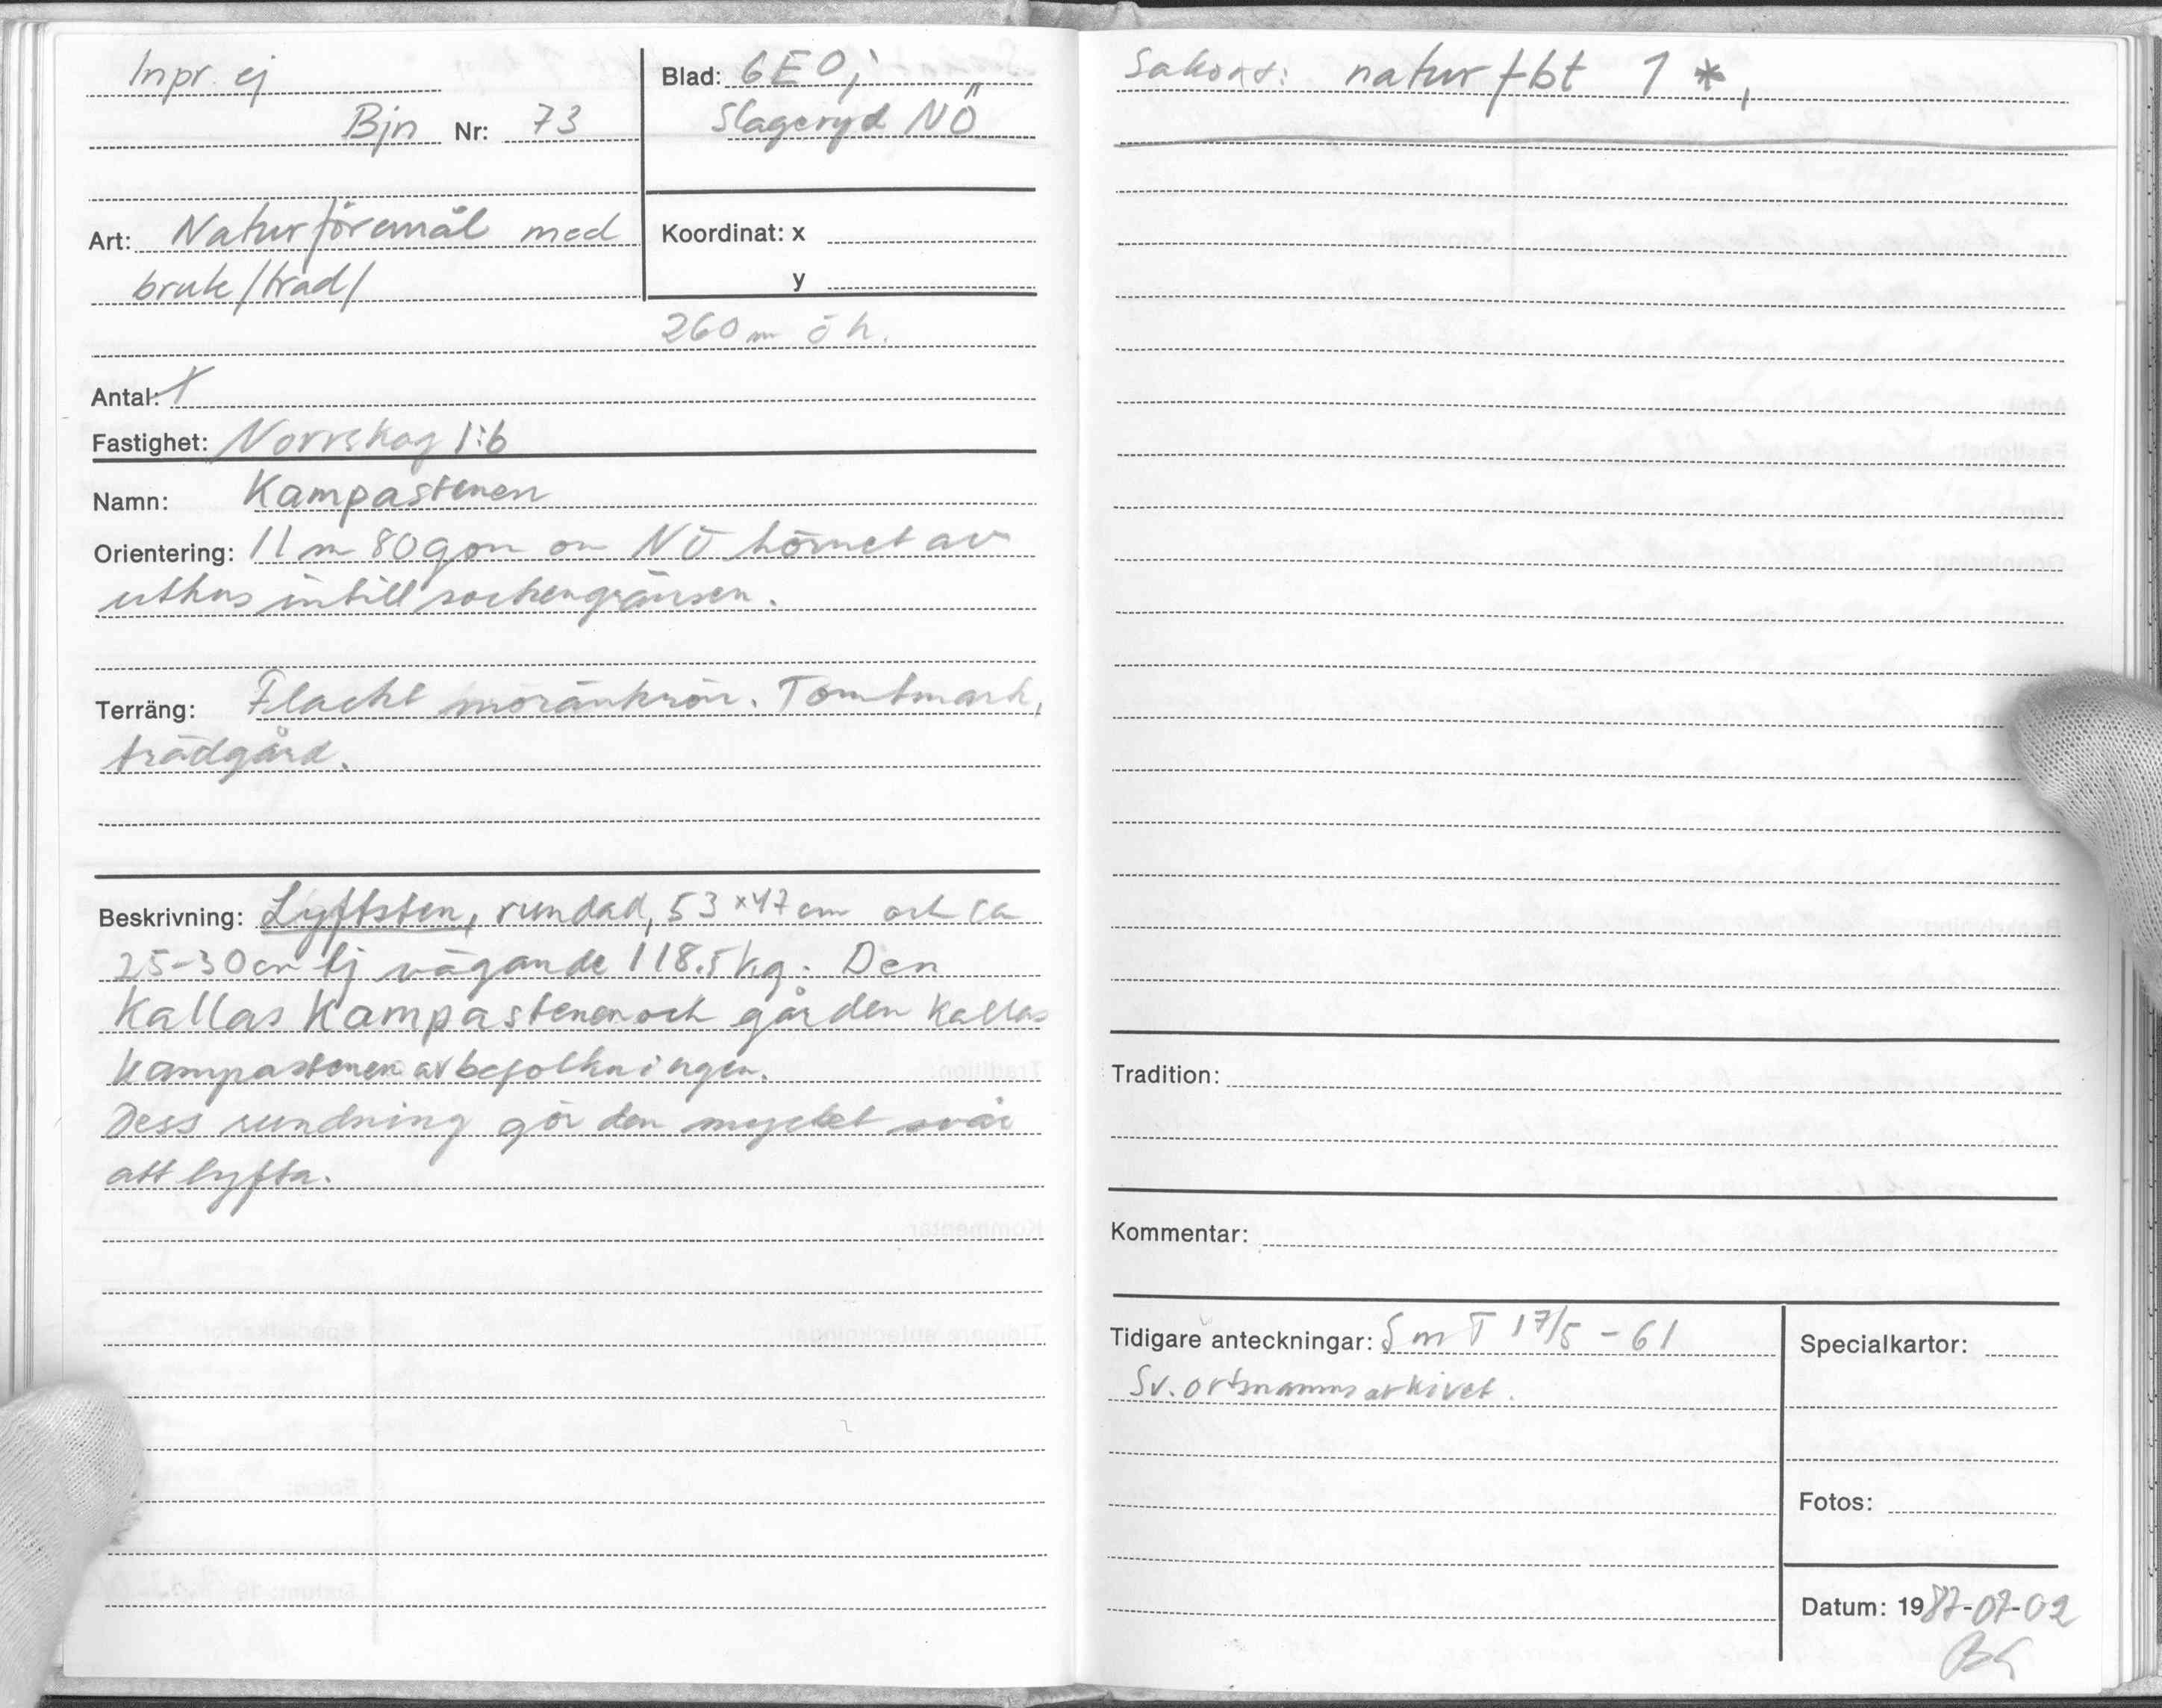 Inpr. ej
Bjn Nr: 73
Art: Naturföremål med
bruk/trad/
Blad: 6E0j
Slageryd NÖ
Koordinat: x
y
260 m ö h.
Antal: 1
Fastighet: Norrskog 1:6
Namn: Kampastenen
Orientering: 11 m 80 gon om NÖ hörnet av
uthus intill sockengränsen.
Terräng: Flackt moränkrön. Tomtmark,
trädgård.
Beskrivning: Lyftsten, rundad, 53 x 47 cm och ca
25-30 cm tj vägande 118.5 kg. Den
kallas Kampastenen och gården kallas
kampastenen av befolkningen.
Dess rundning gör den mycket svår
att lyfta.
natur f bt 1 *,
Tradition:
Kommentar:
Tidigare anteckningar: Sm T 17/5 - 61
Sv. ortnamnsarkivet.
Specialkartor:
Fotos:
Datum: 1987-07-02